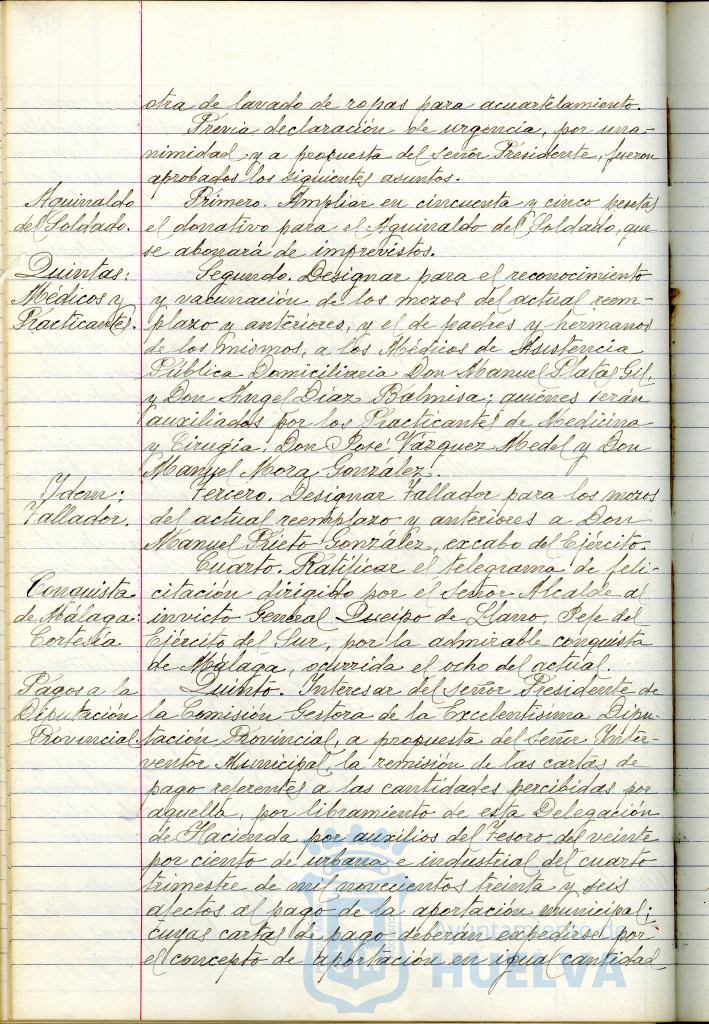 otra de lavado de ropas para acuartelamiento.
Previa declaración de urgencia, por una-
nimidad y a propuesta del Señor Presidente, fueron
aprobados los siguientes asuntos.
Aguinaldo
del Soldado.
Primero. Ampliar en cincuenta y cinco pesetas
el donativo para el Aguinaldo del Soldado, que
se abonará de imprevistos.
Quintas:
Médicos y
Practicantes.
Segundo. Designar para el reconocimiento
y vacunación de los mozos del actual reem-
plazo y anteriores, y el de padres y hermanos
de los mismos, a los Médicos de Asistencia
Pública Domiciliaria Don Manuel Plata Gil,
y Don Angel Díaz Balmisa; quienes serán
auxiliados por los Practicantes de Medicina
y Cirugía, Don José Vázquez Medel y Don
Manuel Mora González.
Idem:
Tallador.
Tercero. Designar Tallador para los mozos
del actual reemplazo y anteriores a Don
Manuel Prieto González, excabo del Ejército.
Conquista
de Málaga:
Cortesía
Cuarto. Ratificar el telegrama de feli-
citación dirigido por el Señor Alcalde al
invicto General Queipo de Llano, Jefe del
Ejército del Sur, por la admirable conquista
de Málaga, ocurrida el ocho del actual.
Pagos a la
Diputación
Provincial.
Quinto. Interesar del señor Presidente de
la Comisión Gestora de la Excelentísima Dipu-
tación Provincial, a propuesta del Señor Inter-
ventor Municipal, la remisión de las cartas de
pago referentes a las cantidades percibidas por
aquella, por libramiento de esta Delegación
de Hacienda por auxilios del Tesoro, del veinte
por ciento de urbana e industrial del cuarto
trimestre de mil novecientos treinta y seis
afectos al pago de la aportación municipal;
cuyas cartas de pago deberán expedirse por
el concepto de aportación en igual cantidad
Ayuntamiento de
HUELVA